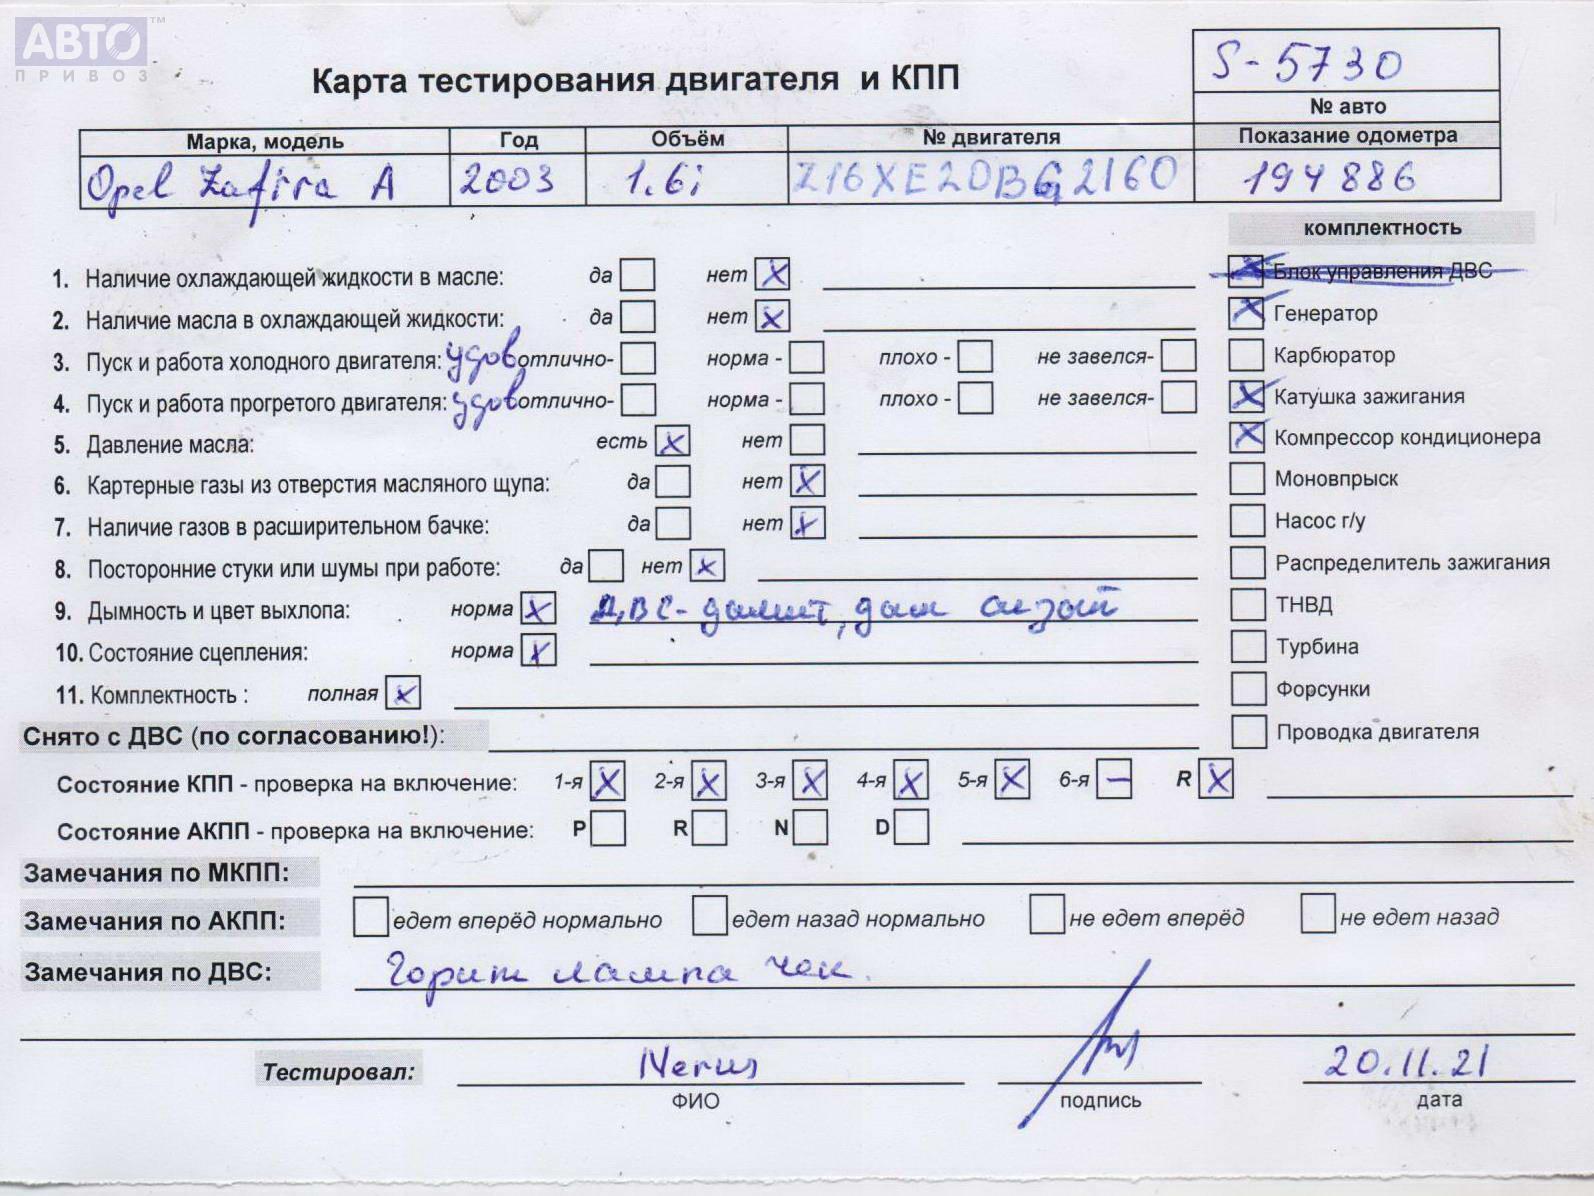 АВТО ™
ПРИВОЗ
Карта тестирования двигателя и КПП
S-5730
№ авто
Марка, модель Год Объём № двигателя Показание одометра
Opel Zafira A 2003 1.6i Z16XE20BG2160 194886
комплектность
1. Наличие охлаждающей жидкости в масле: да нет X
Блок управления ДВС
2. Наличие масла в охлаждающей жидкости: да нет X
X Генератор
3. Пуск и работа холодного двигателя: удов отлично- норма - плохо - не завелся-
Карбюратор
4. Пуск и работа прогретого двигателя: удов отлично- норма - плохо - не завелся-
X Катушка зажигания
5. Давление масла: есть X нет
X Компрессор кондиционера
6. Картерные газы из отверстия масляного щупа: да нет X
Моновпрыск
7. Наличие газов в расширительном бачке: да нет X
Насос г/у
8. Посторонние стуки или шумы при работе: да нет X
Распределитель зажигания
9. Дымность и цвет выхлопа: норма X ДВС- дымит, дым сизый
ТНВД
10. Состояние сцепления: норма X
Турбина
11. Комплектность : полная X
Форсунки
Снято с ДВС (по согласованию!):
Проводка двигателя
Состояние КПП - проверка на включение: 1-я X 2-я X 3-я X 4-я X 5-я X 6-я – R X
Состояние АКПП - проверка на включение: P R N D
Замечания по МКПП:
Замечания по АКПП: едет вперёд нормально едет назад нормально не едет вперёд не едет назад
Замечания по ДВС: Горит лампа чек.
Тестировал: 20.11.21
ФИО подпись дата